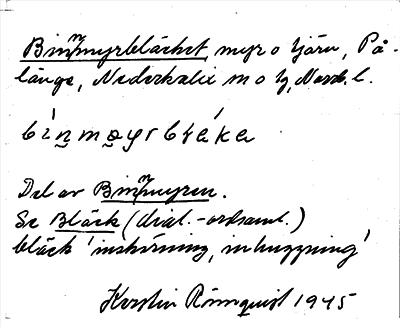 Binnmyrbläcket, myr o tjärn, På-
länge, Nederkalix sn o tg, Nordb. l.
bìn̲mo̲yrbɫǽka
Del av Binnmyren.
Se Bläck (dial.-ordsaml.)
bläck 'inskärning, inhuggning'
Kerstin Rönnquist 1945